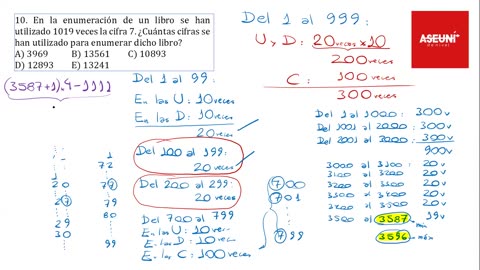 10. En la enumeración de un libro se han
utilizado 1019 veces la cifra 7. ¿Cuántas cifras se
han utilizado para enumerar dicho libro?
A) 3969 B) 13561 C) 10893
D) 12893 E) 13241
(3587+1).4-1111
Del 1 al 999:
U y D: 20 veces x 10
200 veces
C: 100 veces
300 veces
ASEUNI
Del 1 al 99:
En las U: 10 veces
En las D: 10 veces
20 veces
Del 100 al 199:
20 veces
Del 200 al 299:
20 veces
Del 700 al 799
En las U: 10 ver-
E. las D: 10 ver-
E. las C: 100 veces
1
72
20 79
27 79
29 80
30
99
700
701
799
Del 1 al 1000: 300v
Del 1001 al 2000: 300v
Del 2001 al 3000: 300v
900v
3000 al 3100: 20v
3100 al 3200: 20v
3200 al 3300: 20v
3500 al 3587 19v
mín
3596 máx